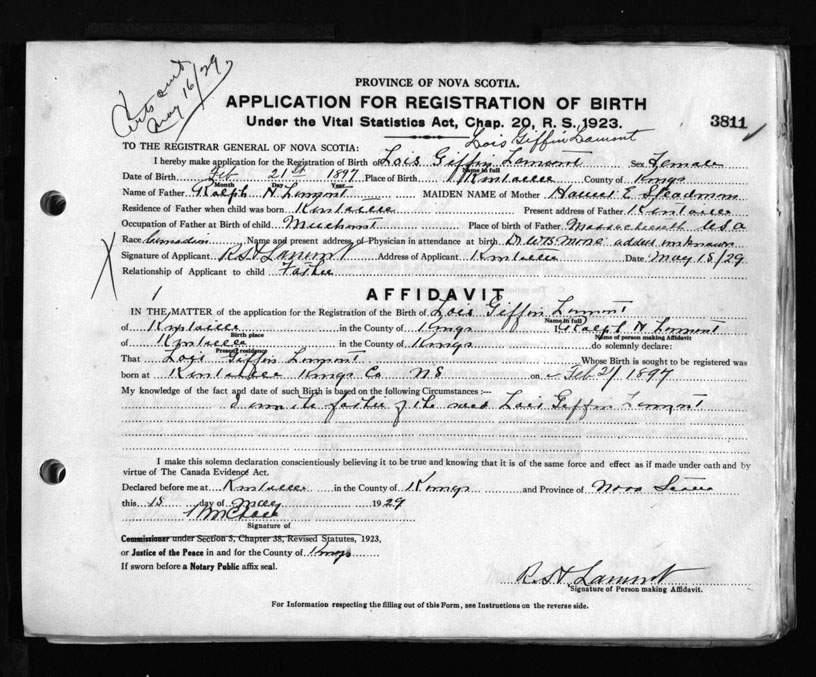 Certs sent
May 16/29
PROVINCE OF NOVA SCOTIA.
APPLICATION FOR REGISTRATION OF BIRTH
Under the Vital Statistics Act, Chap. 20, R. S. 1923.
3811
Lois Giffin Lamont
TO THE REGISTRAR GENERAL OF NOVA SCOTIA:
I hereby make application for the Registration of Birth of Lois Giffin Lamont Sex Female
Name in full
Date of Birth Feb 21st 1897 Place of Birth County of Kings
Month Day Year
Name of Father Ralph H Lamont MAIDEN NAME of Mother E Steadman
Residence of Father when child was born Present address of Father
Occupation of Father at Birth of child Merchant Place of birth of Father Massachusetts USA
Race Canadian Name and present address of Physician in attendance at birth address unknown
Signature of Applicant R H Lamont Address of Applicant Date May 15/29
Relationship of Applicant to child Father
AFFIDAVIT
IN THE MATTER of the application for the Registration of the Birth of Lois Giffin Lamont
Name in full
of in the County of Kings Ralph H Lamont
Birth place Name of person making Affidavit
of in the County of Kings do solemnly declare:
Present residence
That Lois Giffin Lamont Whose Birth is sought to be registered was
born at Kings Co NS on Feb 21 1897
My knowledge of the fact and date of such Birth is based on the following Circumstances :—
I am the father of the said Lois Giffin Lamont
I make this solemn declaration conscientiously believing it to be true and knowing that it is of the same force and effect as if made under oath and by
virtue of The Canada Evidence Act.
Declared before me at in the County of Kings and Province of Nova Scotia
this 15 day of May 1929
Signature of
Commissioner under Section 5, Chapter 38, Revised Statutes, 1923,
or Justice of the Peace in and for the County of Kings
If sworn before a Notary Public affix seal.
R H Lamont
Signature of Person making Affidavit.
For Information respecting the filling out of this Form, see Instructions on the reverse side.